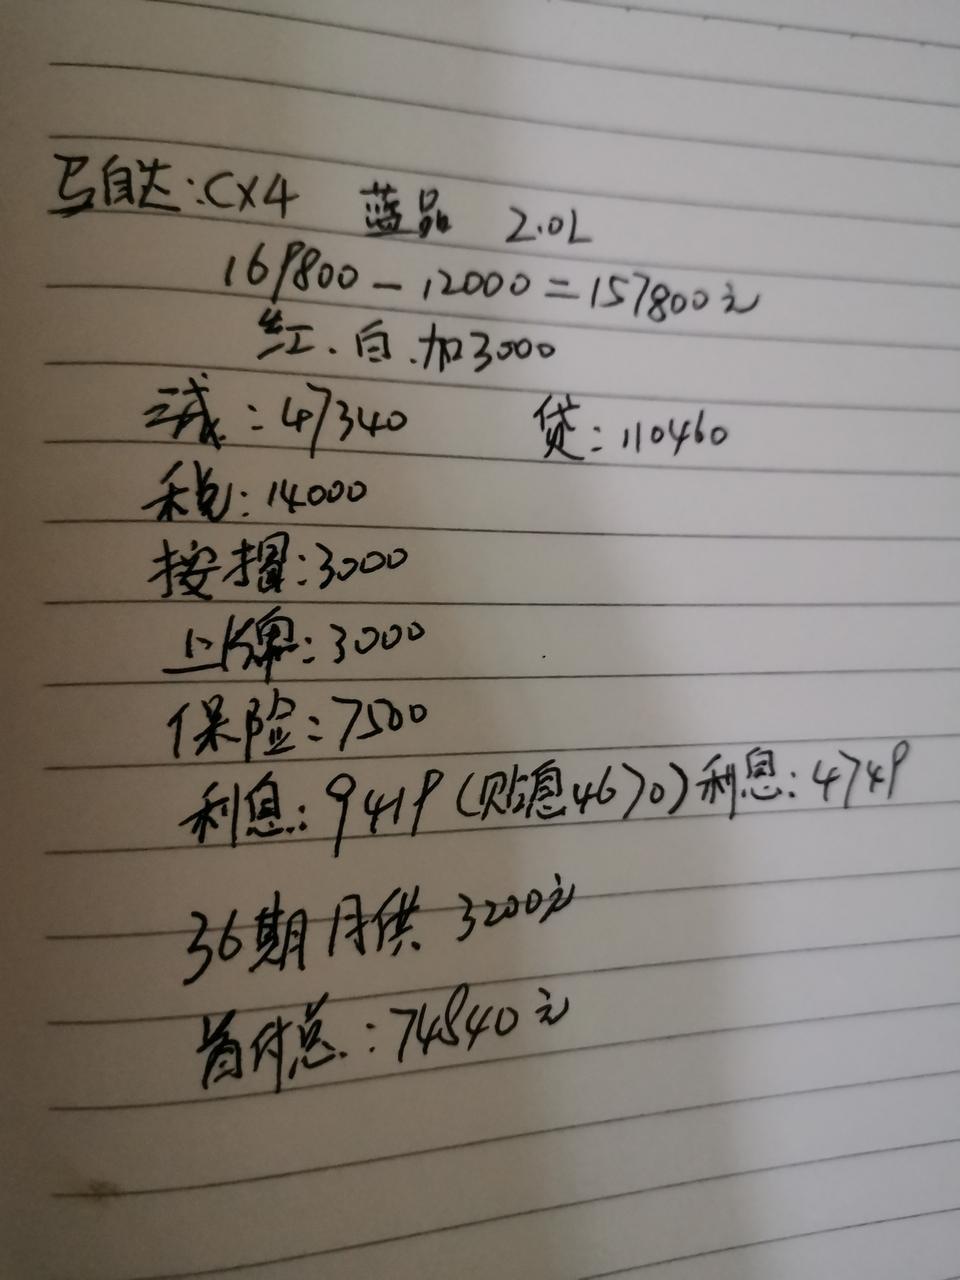 马自达:CX4 蓝品 2.0L
169800-12000=157800元
红.白.加3000
三成:47340 贷:110460
税:14000
按揭:3000
上牌:3000
保险:7500
利息:9419(贴息4670)利息:4749
36期月供 3200元
首付总:74840元